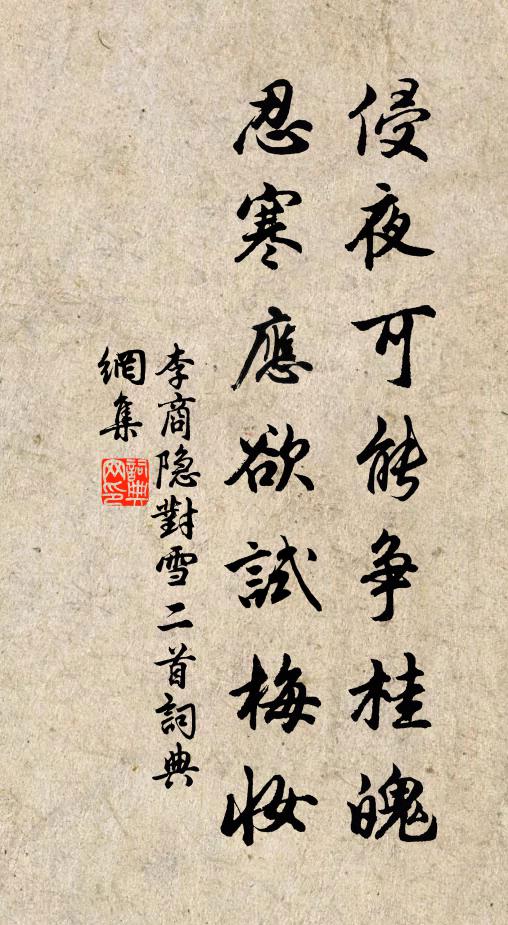 侵夜可能争桂魄
忍寒應欲試梅妝
李商隐對雪二首詞典
網集
詞典
网印